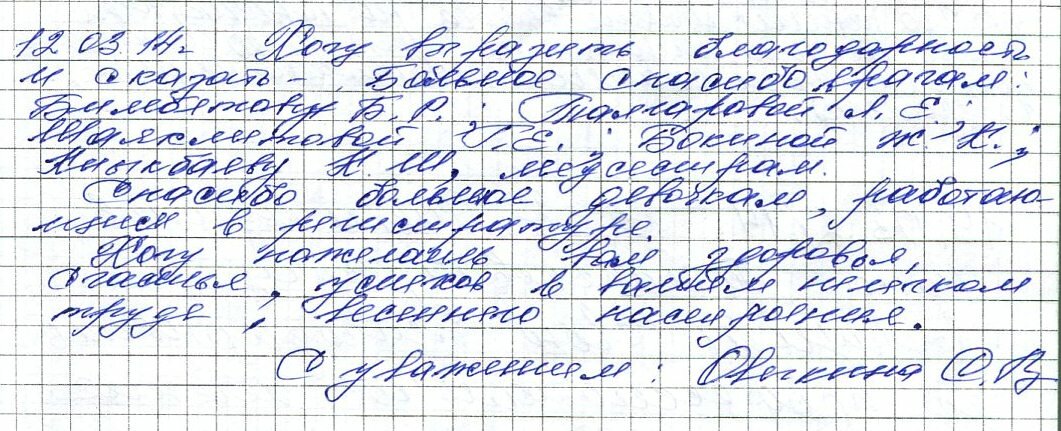 12 03 14г. Хочу выразить благодарность
и сказать - Большое спасибо врачам:
Б. Р.; Л. Е.;
Г. Е.; Бокиной Ж. К.;
К. Ш., медсестрам.
Спасибо большое девочкам, работаю-
щим в регистратуре.
Хочу пожелать Вам здоровья,
счастья, успехов в вашем нелегком
труде, весеннего настроения.
С уважением: С. В.